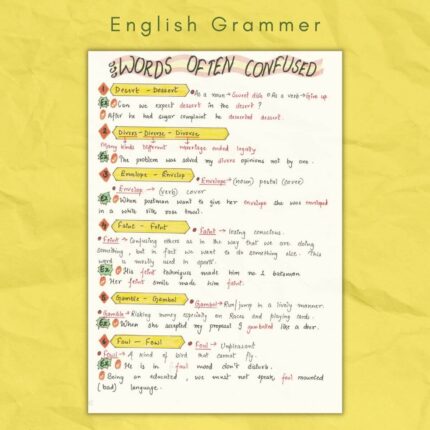 English Grammer
WORDS OFTEN CONFUSED
1 Desert - Dessert • As a noun → Sweet dish • As a verb → Give up
Ex Can we expect dessert in the desert ?
After he had sugar complaint he deserted dessert.
2 Divers - Diverse - Divorce
Many kinds Different marriage ended legally
Ex The problem was solved my divers opinions not by one.
3 Envelope - Envelop • Envelope → (noun) postal (cover)
• Envelop → (verb) cover
Ex When postman want to give her envelope she was enveloped
in a white silk
4 Faint - Feint • Faint → losing conscious.
• Feint → Confusing others as in the way that we are doing
something, but in fact we want to do something else. This
word is mostly used in sports.
Ex His feint techniques made him no. 1 batsman
Her feint smile made him faint.
5 Gamble - Gambol • Gambol → Run/jump in a lively manner.
• Gamble → Risking money especially on Races and playing cards.
Ex When she accepted my proposal I gamboled like a deer.
6 Foul - Fowl • Foul → Unpleasant
• Fowl → A kind of bird that cannot fly.
Ex He is in foul mood don't disturb.
Being an educated, we must not speak, foul mouthed
(bad) language.